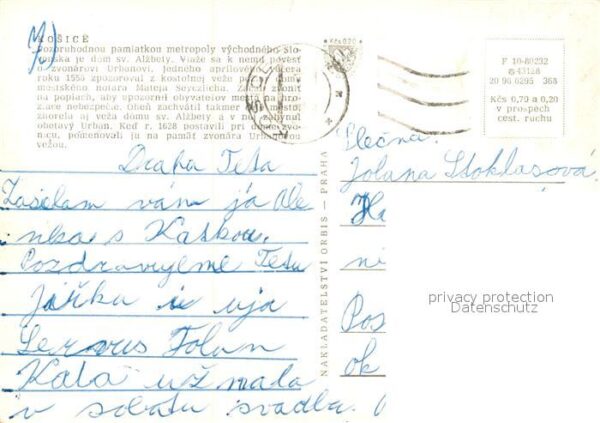 7)
KOŠICE
Pozoruhodnou pamiatkou metropoly východného Slo-
venska je dóm sv. Alžbety. Viaže sa k nemu povesť
o zvonárovi Urbanovi. Jedného aprílového večera
roku 1556 zpozoroval z kostolnej veže pri domy
mestského notára Mateja Seyczlicha. Začal zvoniť
na poplach, aby upozornil obyvateľov mesta na hro-
ziace nebezpečie. Oheň zachvátil takmer celé mesto,
zhorela aj veža dómu sv. Alžbety a v nej zahynul
obetavý Urban. Keď r. 1628 postavili pri dóme zvo-
nicu, pomenovali ju na pamäť zvonára Urbanovou
vežou.
Draha Teta
Zasielam vám ja Ole
nka s Katkou.
Pozdravujeme Tetu
Jarku i uja
Servus Folan
Kata už mala
v sobotu svadbu.
NAKLADATELSTVÍ ORBIS — PRAHA
F 10-80232
43128
20 96 0295 368
Kčs 0,79 a 0,20
v prospech
cest. ruchu
Slečna
Jolana Stoklasová
Ha
ni
Pos
ok
privacy protection
Datenschutz